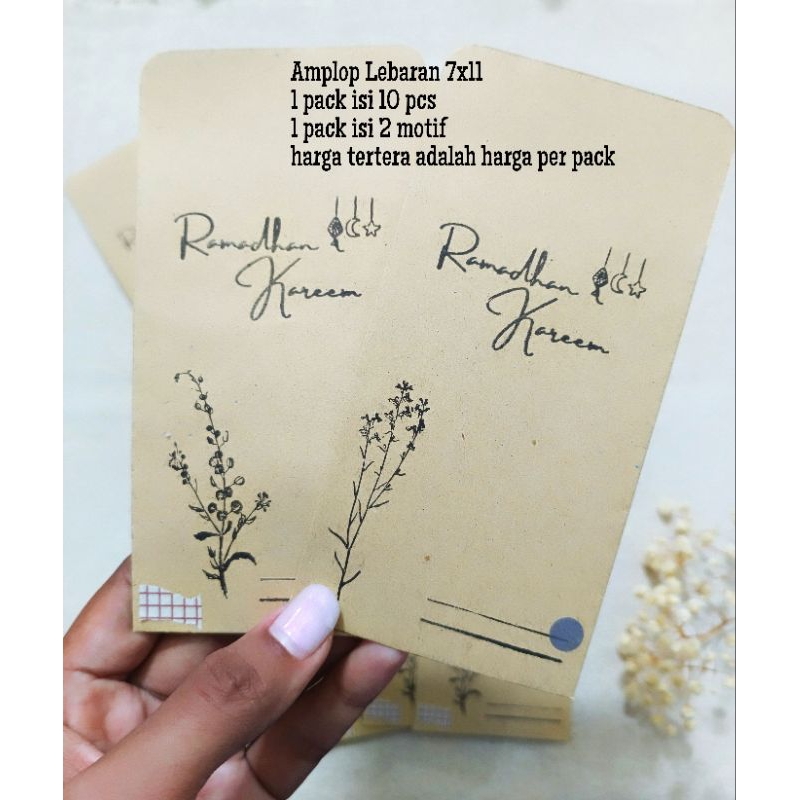 Amplop Lebaran 7x11
1 pack isi 10 pcs
1 pack isi 2 motif
harga tertera adalah harga per pack
Ramadhan
Kareem
Ramadhan
Kareem